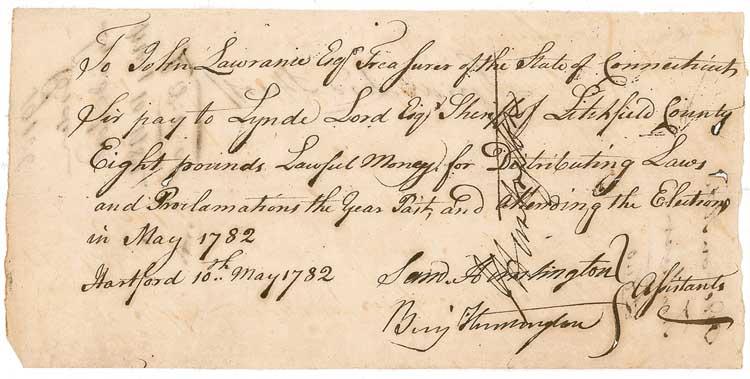 To John Lawrance Esqr Treasurer of the State of Connecticut
Sir pay to Lynde Lord Esqr Sheriff of Litchfield County
Eight pounds Lawful Money, for Distributing Laws
and Proclamations the Year Past, and attending the Election
in May 1782
Hartford 10th May 1782
Saml Huntington
Benj Huntington
Assistants